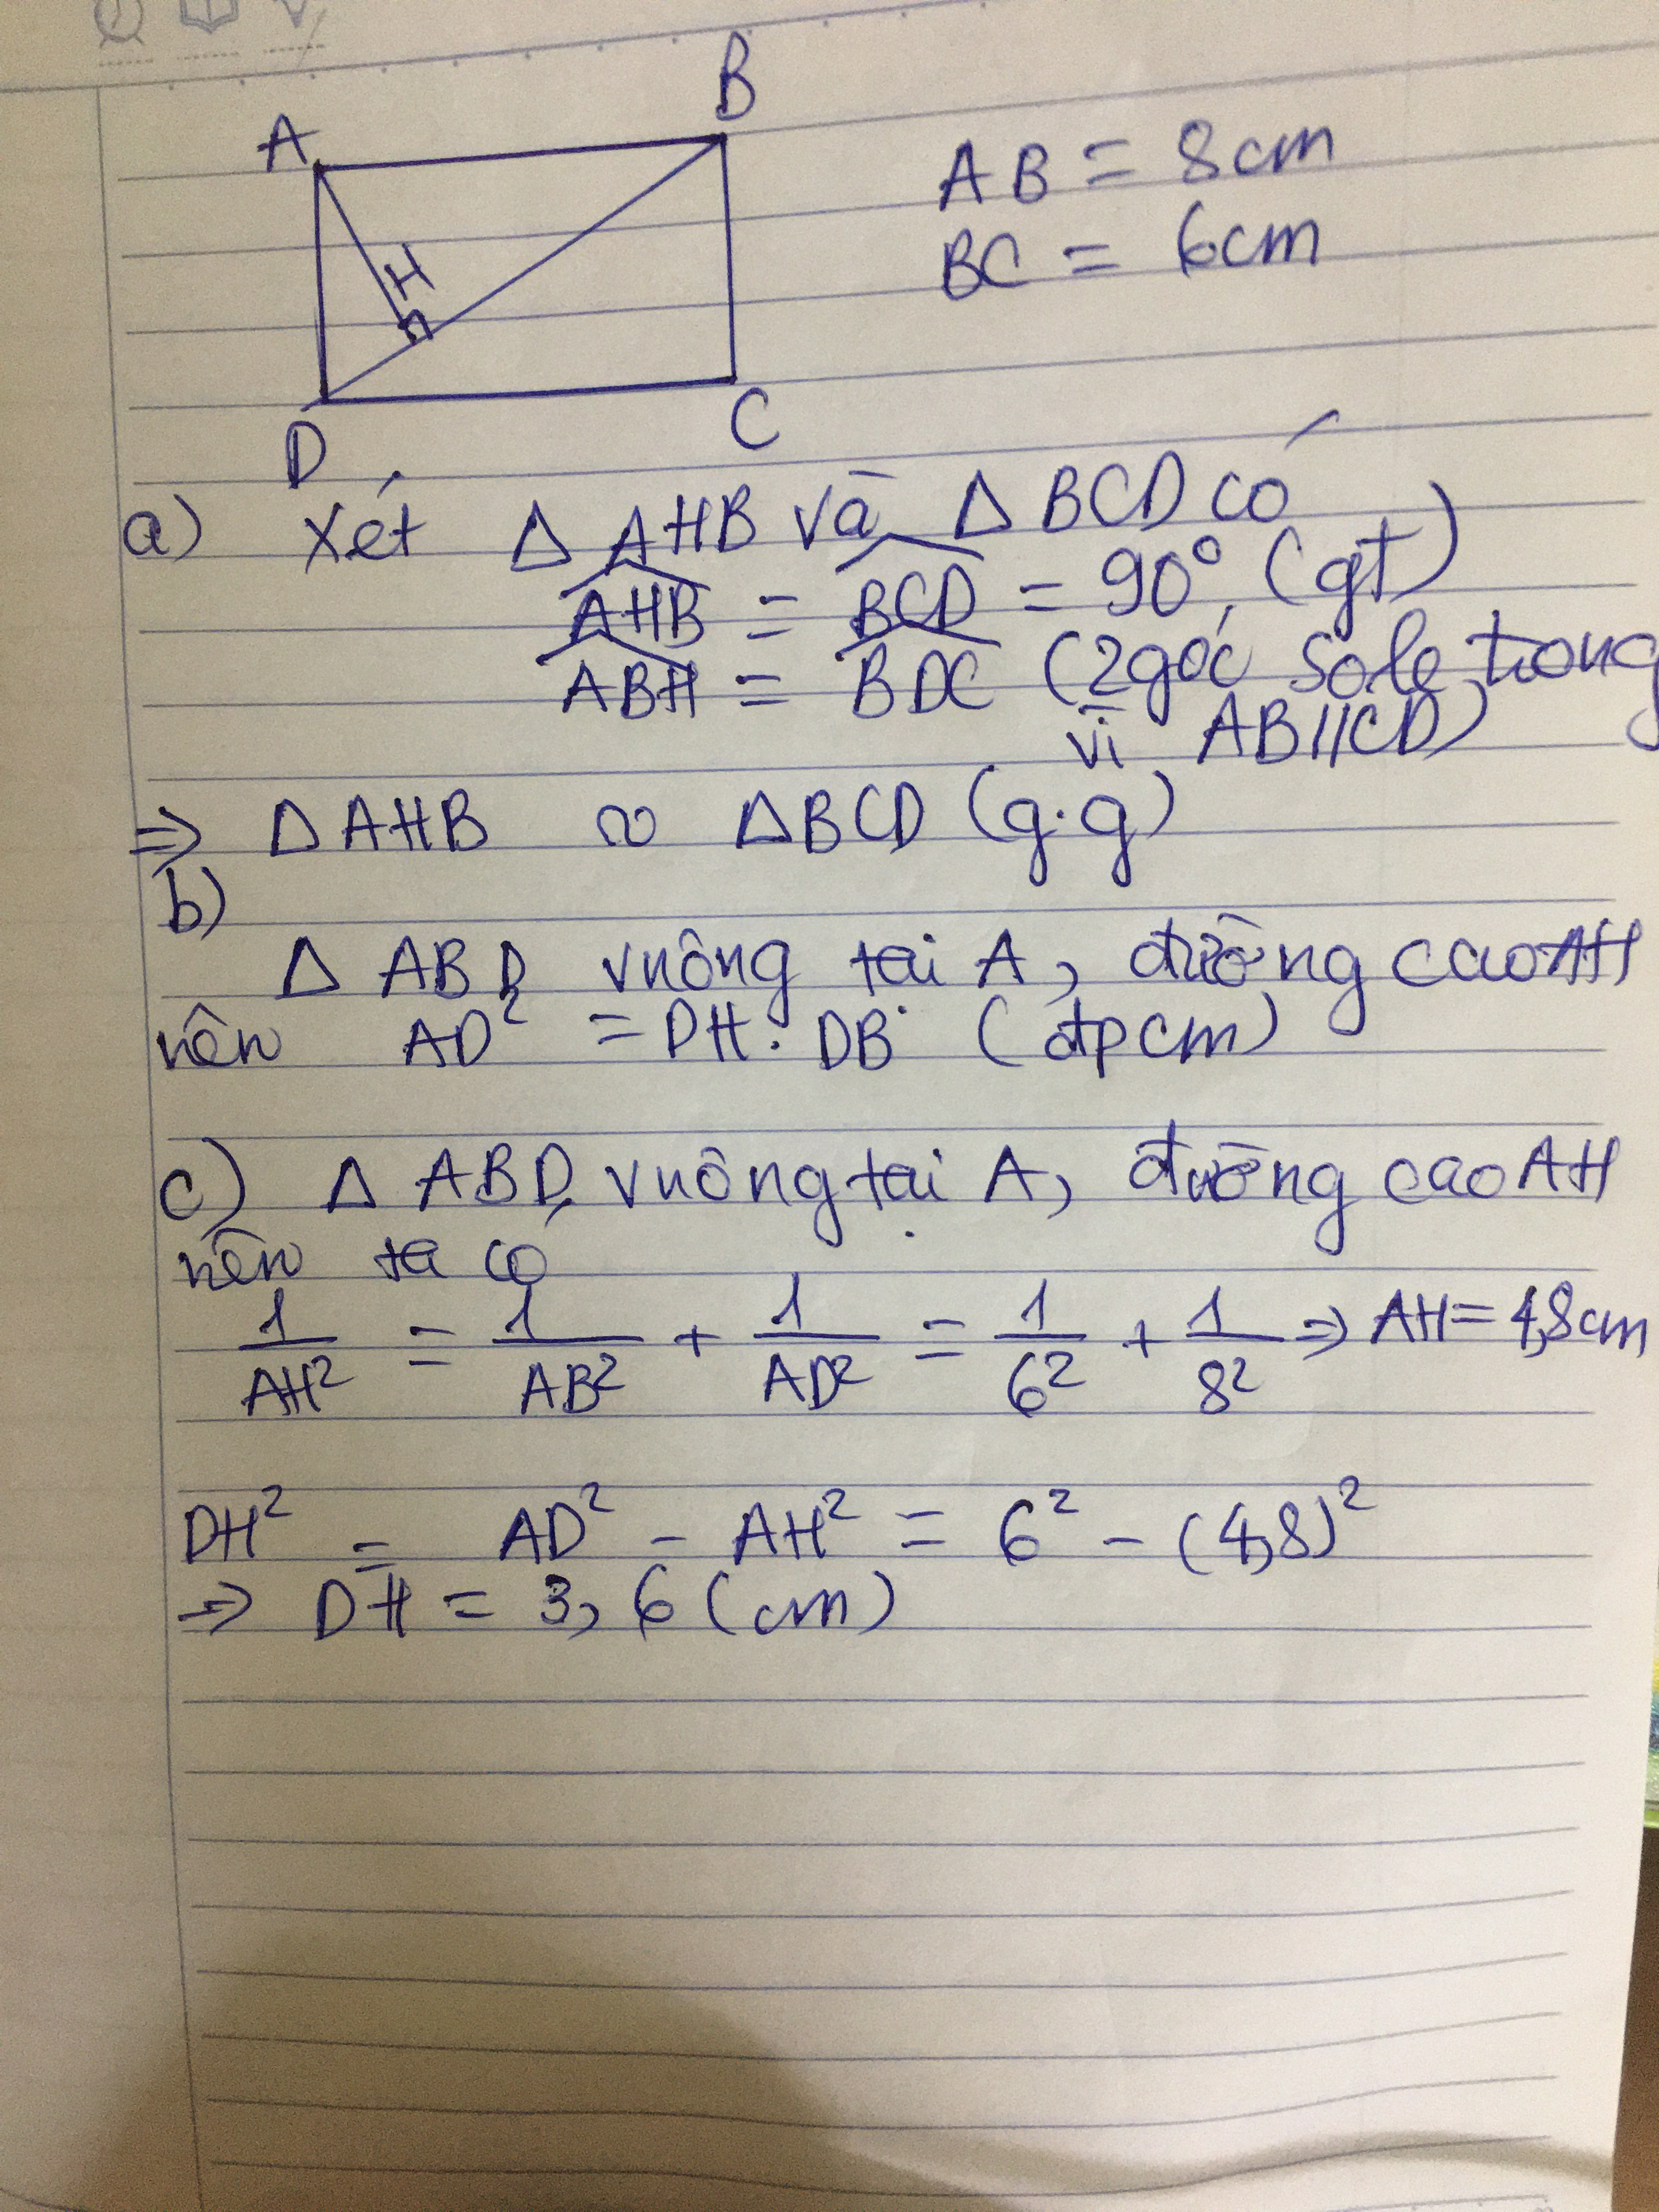 A
B
H
D
C
AB = 8cm
BC = 6cm
a) Xét △ AHB và △ BCD có
AHB = BCD = 90° (gt)
ABH = BDC (2 góc sole trong
vì AB//CD)
⇒ △AHB ∽ △BCD (g.g)
b)
△ ABD vuông tại A, đường cao AH
nên AD² = DH. DB (đpcm)
c) △ ABD vuông tại A, đường cao AH
nên ta có
1/AH² = 1/AB² + 1/AD² = 1/6² + 1/8² ⇒ AH = 4,8cm
DH² = AD² - AH² = 6² - (4,8)²
⇒ DH = 3,6 (cm)